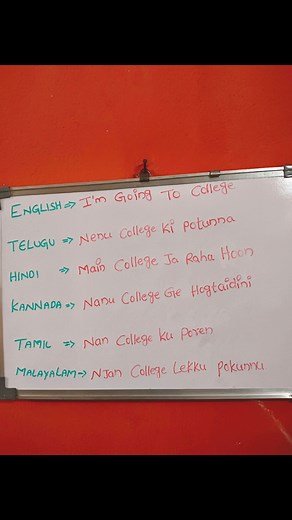 ENGLISH ⇒ I'm Going To College
TELUGU ⇒ Nenu College Ki Potunna
HINDI ⇒ Main College Ja Raha Hoon
KANNADA ⇒ Nanu College Gie Hogtaidini
TAMIL ⇒ Nan College Ku Poren
MALAYALAM ⇒ NJan College Lekku Pokunnu